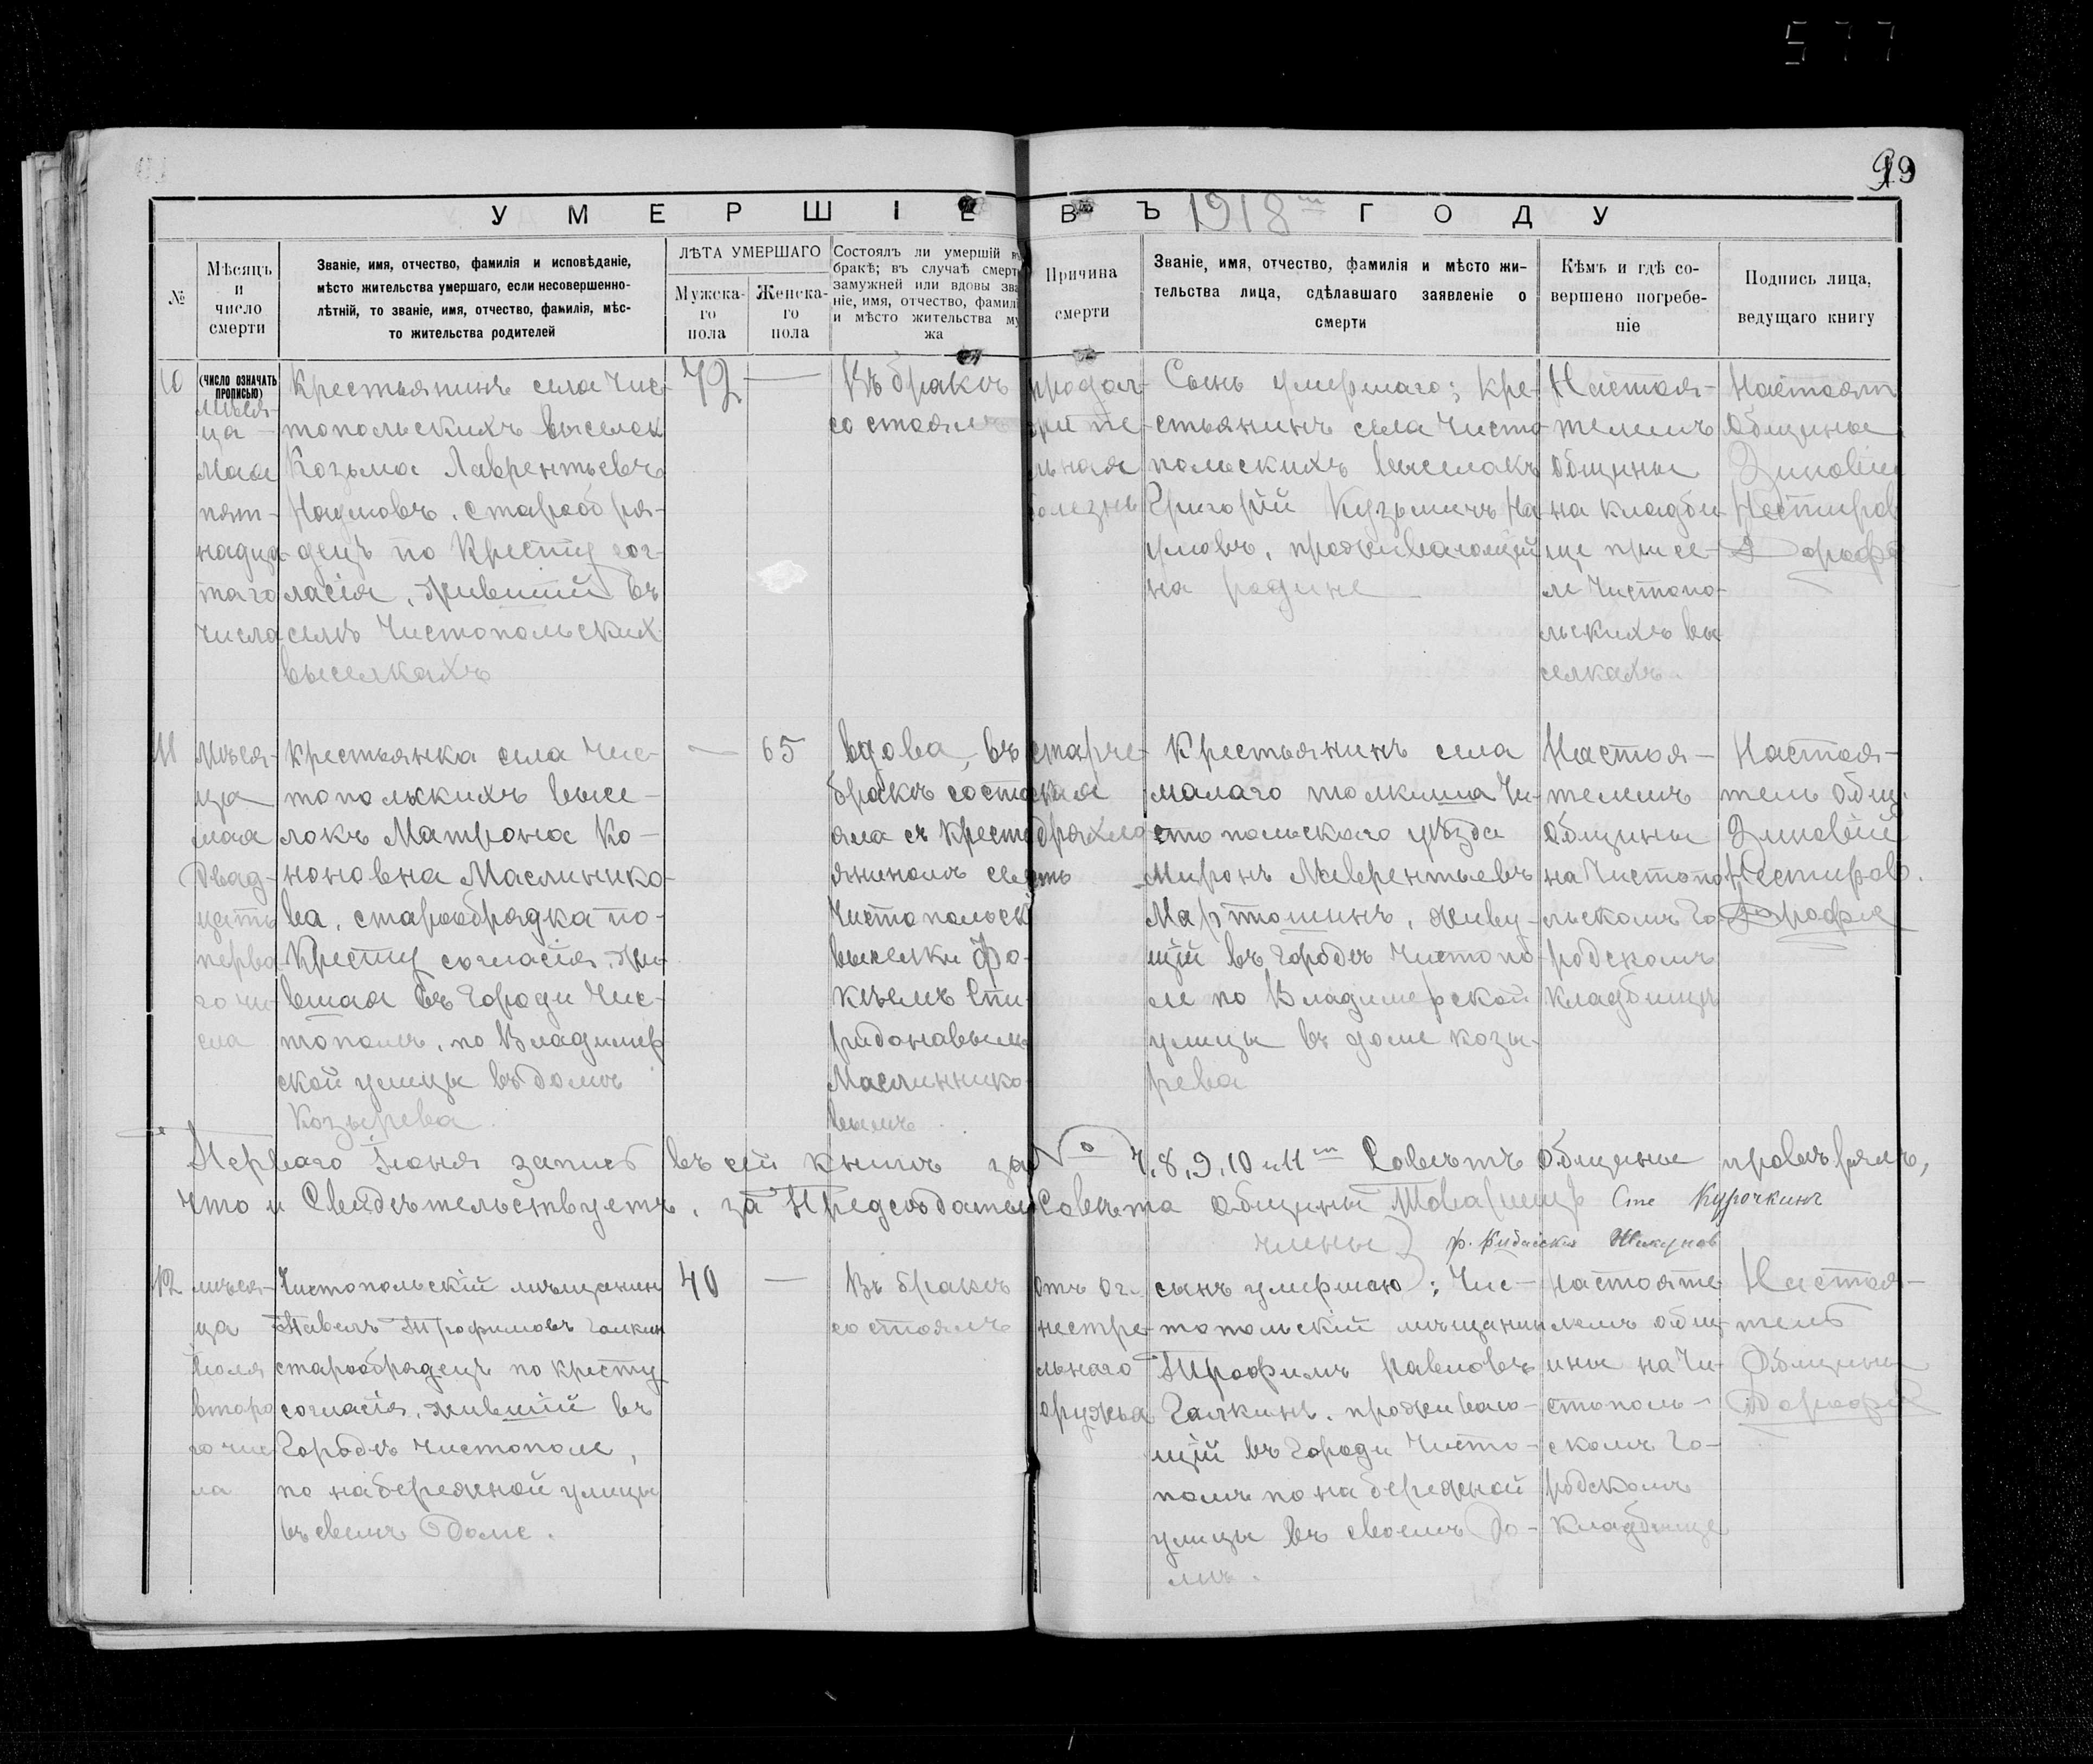 577
99
УМЕРШІЕ ВЪ 1918 ГОДУ
№
Мѣсяцъ
и
число
смерти
Званіе, имя, отчество, фамилія и исповѣданіе,
мѣсто жительства умершаго, если несовершенно-
лѣтній, то званіе, имя, отчество, фамилія, мѣс-
то жительства родителей
ЛѢТА УМЕРШАГО
Мужска-
го
пола
Женска-
го
пола
Состоялъ ли умершій въ
бракѣ; въ случаѣ смерти
замужней или вдовы зва-
ніе, имя, отчество, фамилія
и мѣсто жительства му-
жа
Причина
смерти
Званіе, имя, отчество, фамилія и мѣсто жи-
тельства лица, сдѣлавшаго заявленіе о
смерти
Кѣмъ и гдѣ со-
вершено погребе-
ніе
Подпись лица,
ведущаго книгу
10
(число означать
прописью)
мѣся-
ца
мая
пят-
надца-
таго
числа
Крестьянинъ села Чис-
топольскихъ выселок
Козьма Лаврентьевъ
Наумовъ, старообря-
децъ по Кресту сог-
ласія, жившій въ
селѣ Чистопольских
выселкахъ
72
—
Въ бракѣ
состоялъ
болезнь
Сынъ умершаго; кре-
стьянинъ села Чисто-
польскихъ выселакъ
Григорій Кузьмичъ На-
умовъ, проживающій
на родине
Настоя-
телемъ
общины
на кладби-
ще при се-
ле Чистопо-
льскихъ вы
селкахъ.
Настоят
общины
Зиновій
Нестиров
Дорофе
11
мѣся-
ца
мая
двад-
цать
перва
го чи-
сла
Крестьянка села Чис-
топольскихъ высе-
локъ Матрона Ко-
ноновна Маслинико-
ва, старообрядка по-
Кресту согласія, жи-
вшая въ городи Чис-
тополѣ, по Владимир
ской улицы въ домѣ
Козырева.
—
65
вдова, въ
бракѣ состо
яла съ кресть
яниномъ села
Чистопольск
выселки Фо-
кѣемъ Спи-
ридонавымъ
Маслиннико-
вымъ.
старче-
ская
дряхло
сть
Крестьянинъ села
малаго толкиша Чи-
стопольскаго уѣзда
Миронъ Лаврентьевъ
Мартошинъ, живу-
щій въ городѣ Чистопо
ле по Владимерской
улицы въ доме козы-
рева
Настоя-
телемъ
общины
на Чистопо
льскомъ го
родскомъ
кладбищѣ
Настоя-
тель общ.
Зиновій
Нестиров.
Дорофе
Перваго Іюня запись въ сей книгѣ за № 7.8.9.10 и 11 Совѣтъ общины провѣрялъ,
что и свидѣтельствуетъ, за Председателя Совѣта общины Товарищ Сте Курочкинъ
члены
12
мѣся-
ца
Іюля
второ
го чис
ла
Чистопольскій мѣщанин
Павелъ Трофимовъ Галкин
старообрядецъ по кресту
согласія, жившій въ
городѣ Чистополе,
по набережной улицы
въ своемъ доме.
40
—
Въ бракѣ
состоялъ
отъ ог-
нестре-
льнаго
оружья
сынъ умершаго: Чис-
топольскій мѣщанин
Трофимъ Павловъ
Галкинъ, проживаю-
щій въ городи Чисто-
полѣ по набережной
улицы въ своемъ до-
мѣ.
настояте
лемъ общ-
ины на Чи-
стополь-
скомъ го-
родскомъ
кладбище
Настоя-
тель
Общины
Дорофе